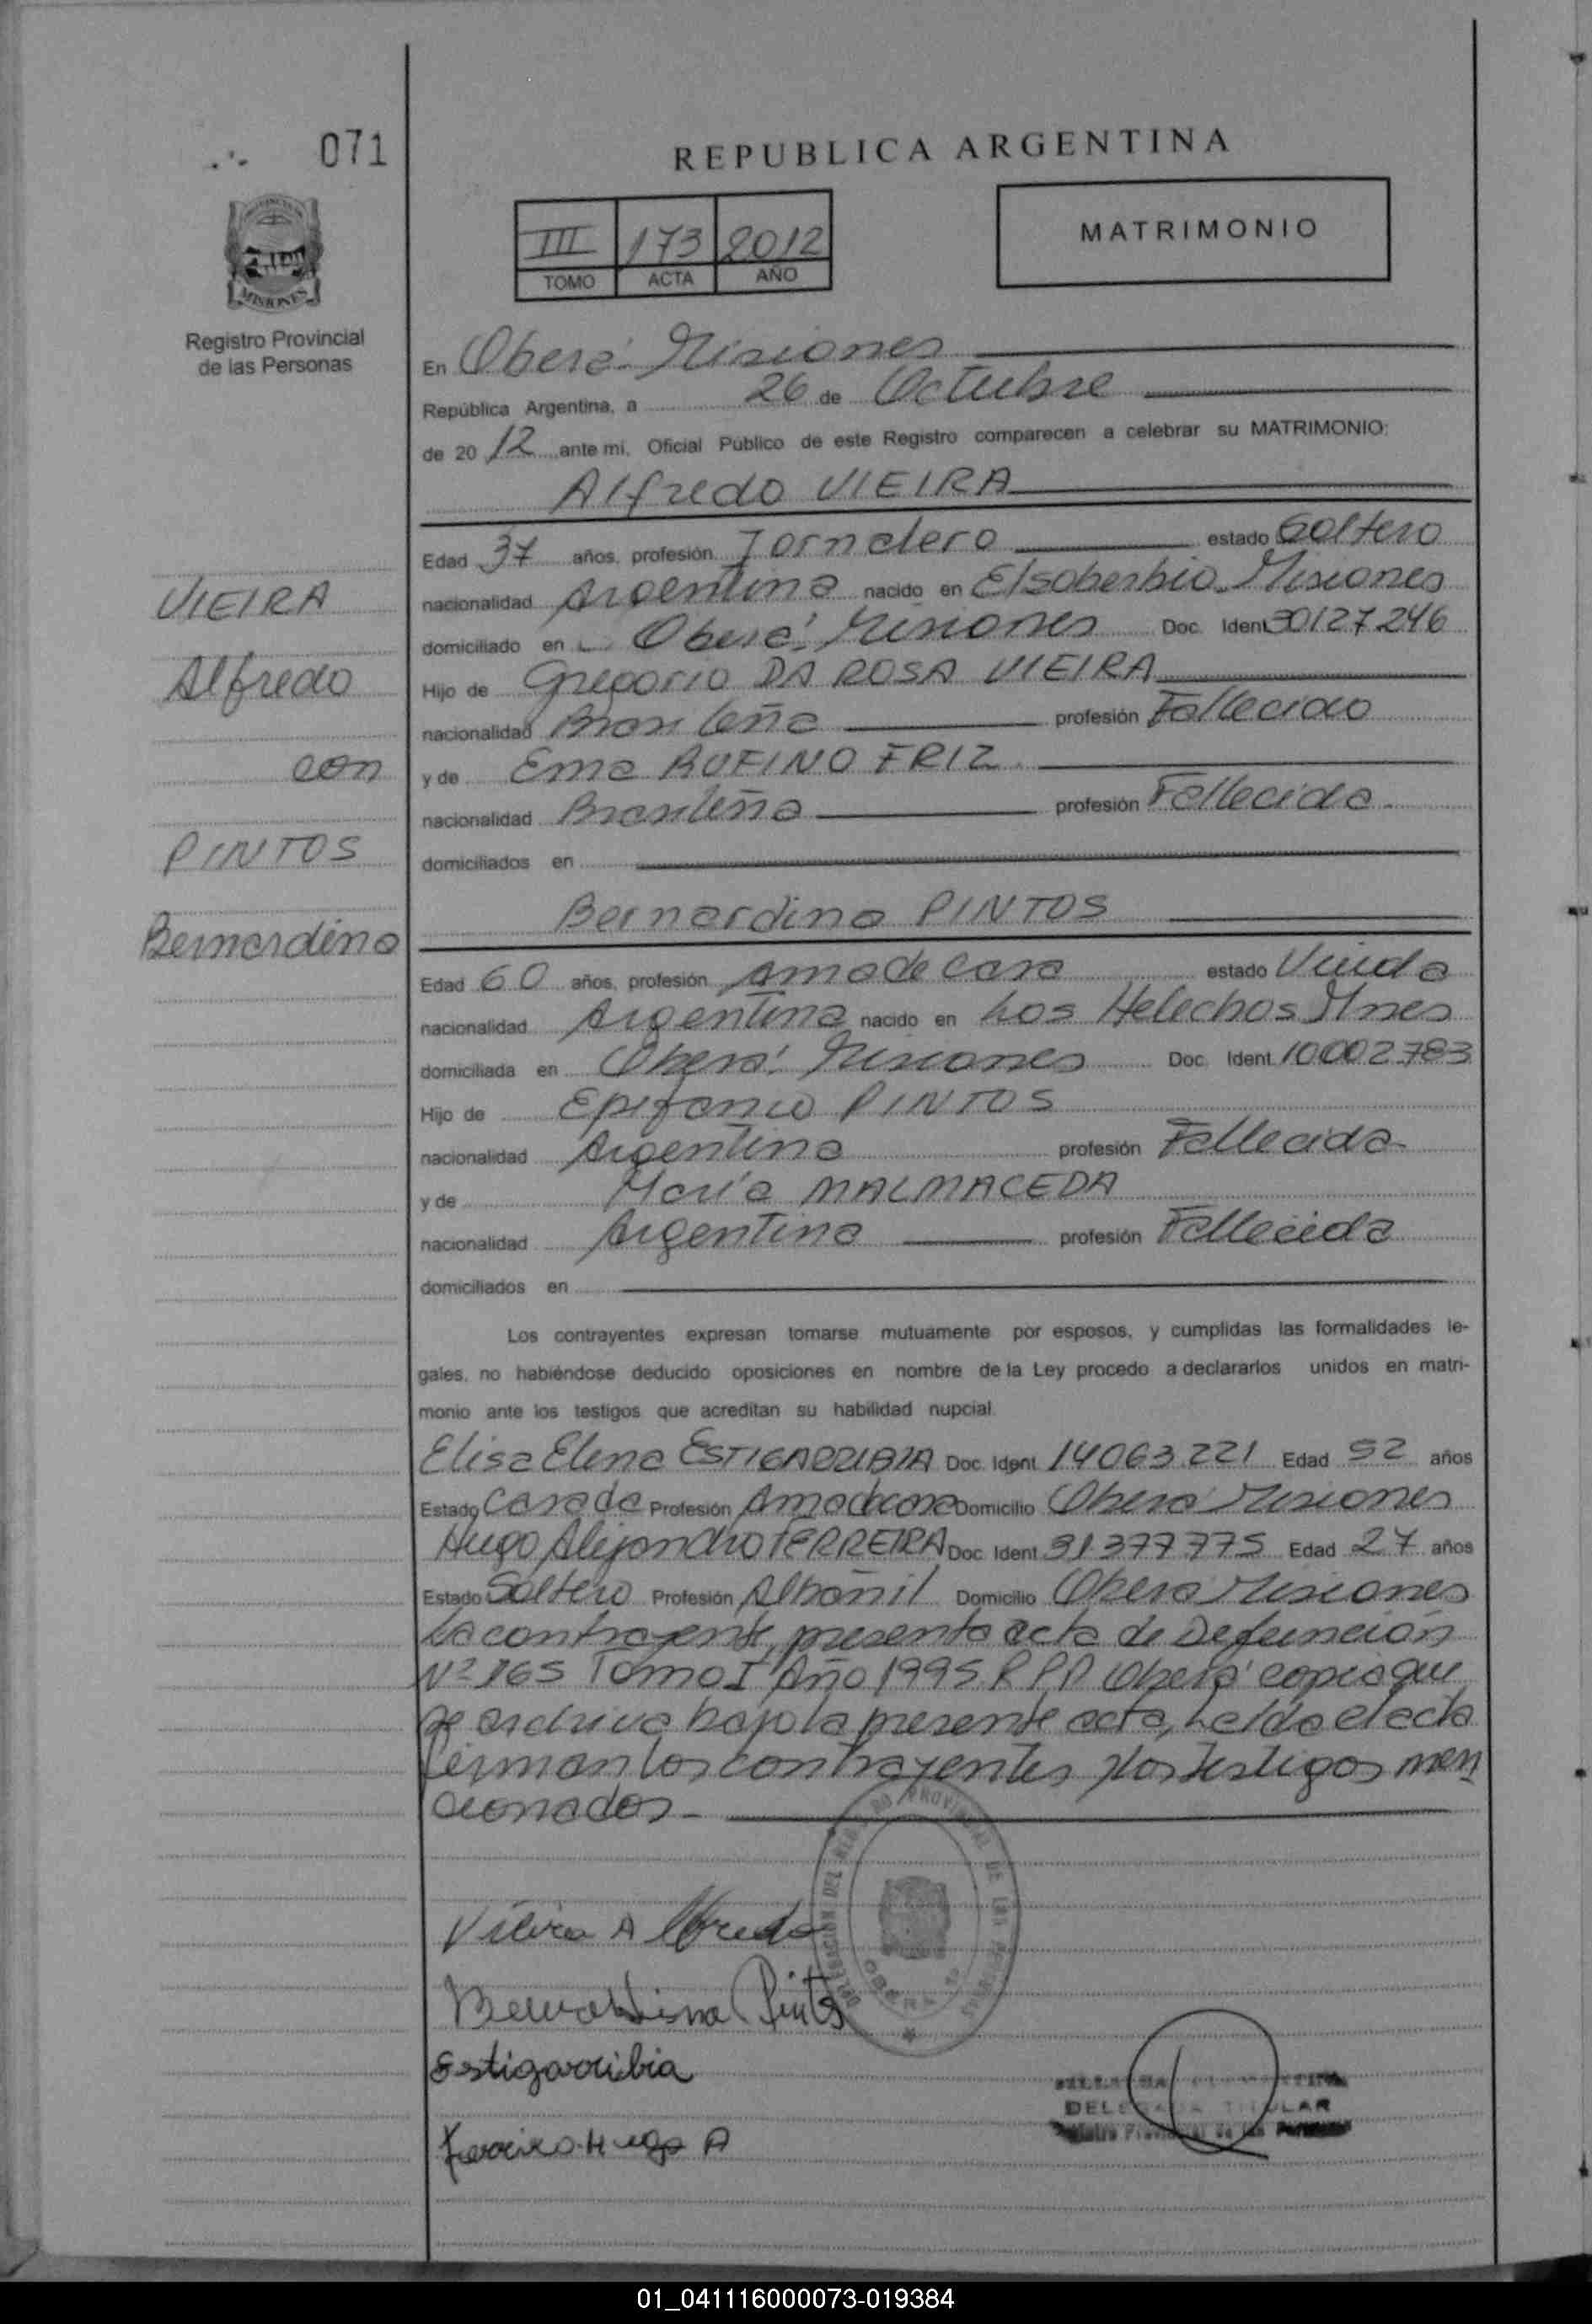 071
REPUBLICA ARGENTINA
III 173 2012
TOMO ACTA AÑO
MATRIMONIO
MISIONES
Registro Provincial
de las Personas
En Oberá Misiones
República Argentina, a 26 de Octubre
de 2012 ante mi, Oficial Público de este Registro comparecen a celebrar su MATRIMONIO:
Alfredo VIEIRA
Edad 37 años, profesión Jornalero estado Soltero
nacionalidad Argentina nacido en Elsoberbio Misiones
domiciliado en Oberá Misiones Doc. Ident 30127246
Hijo de Gregorio DA ROSA VIEIRA
nacionalidad Brasileña profesión Fallecido
y de Ema RUFINO FRIZ
nacionalidad Brasileña profesión Fallecida
domiciliados en
VIEIRA
Alfredo
con
PINTOS
Bernardina
Bernardina PINTOS
Edad 60 años, profesión Ama de casa estado Viuda
nacionalidad Argentina nacido en Los Helechos Mnes
domiciliada en Oberá Misiones Doc. Ident. 10002783
Hijo de Epifanio PINTOS
nacionalidad Argentina profesión Fallecida
y de María MALMACEDA
nacionalidad Argentina profesión Fallecida
domiciliados en
Los contrayentes expresan tomarse mutuamente por esposos, y cumplidas las formalidades le-
gales, no habiéndose deducido oposiciones en nombre de la Ley procedo a declararlos unidos en matri-
monio ante los testigos que acreditan su habilidad nupcial.
Elisa Elena ESTIGARRIBIA Doc. Ident. 14063221 Edad 52 años
Estado Casada Profesión Amadecasa Domicilio Oberá Misiones
Hugo Alejandro FERREIRA Doc. Ident 31377775 Edad 27 años
Estado Soltero Profesión Albañil Domicilio Oberá Misiones
La contrayente, presenta acta de Defunción
Nº 165 Tomo I Año 1995 R.P.P Oberá copia que
se archiva bajo la presente acta, Leída el acta
firman los contrayentes y los testigos men
cionados
Vieira Alfredo
Bernardina Pintos
Estigarribia
Ferreira Hugo A
DELEGADA TITULAR
01_041116000073-019384